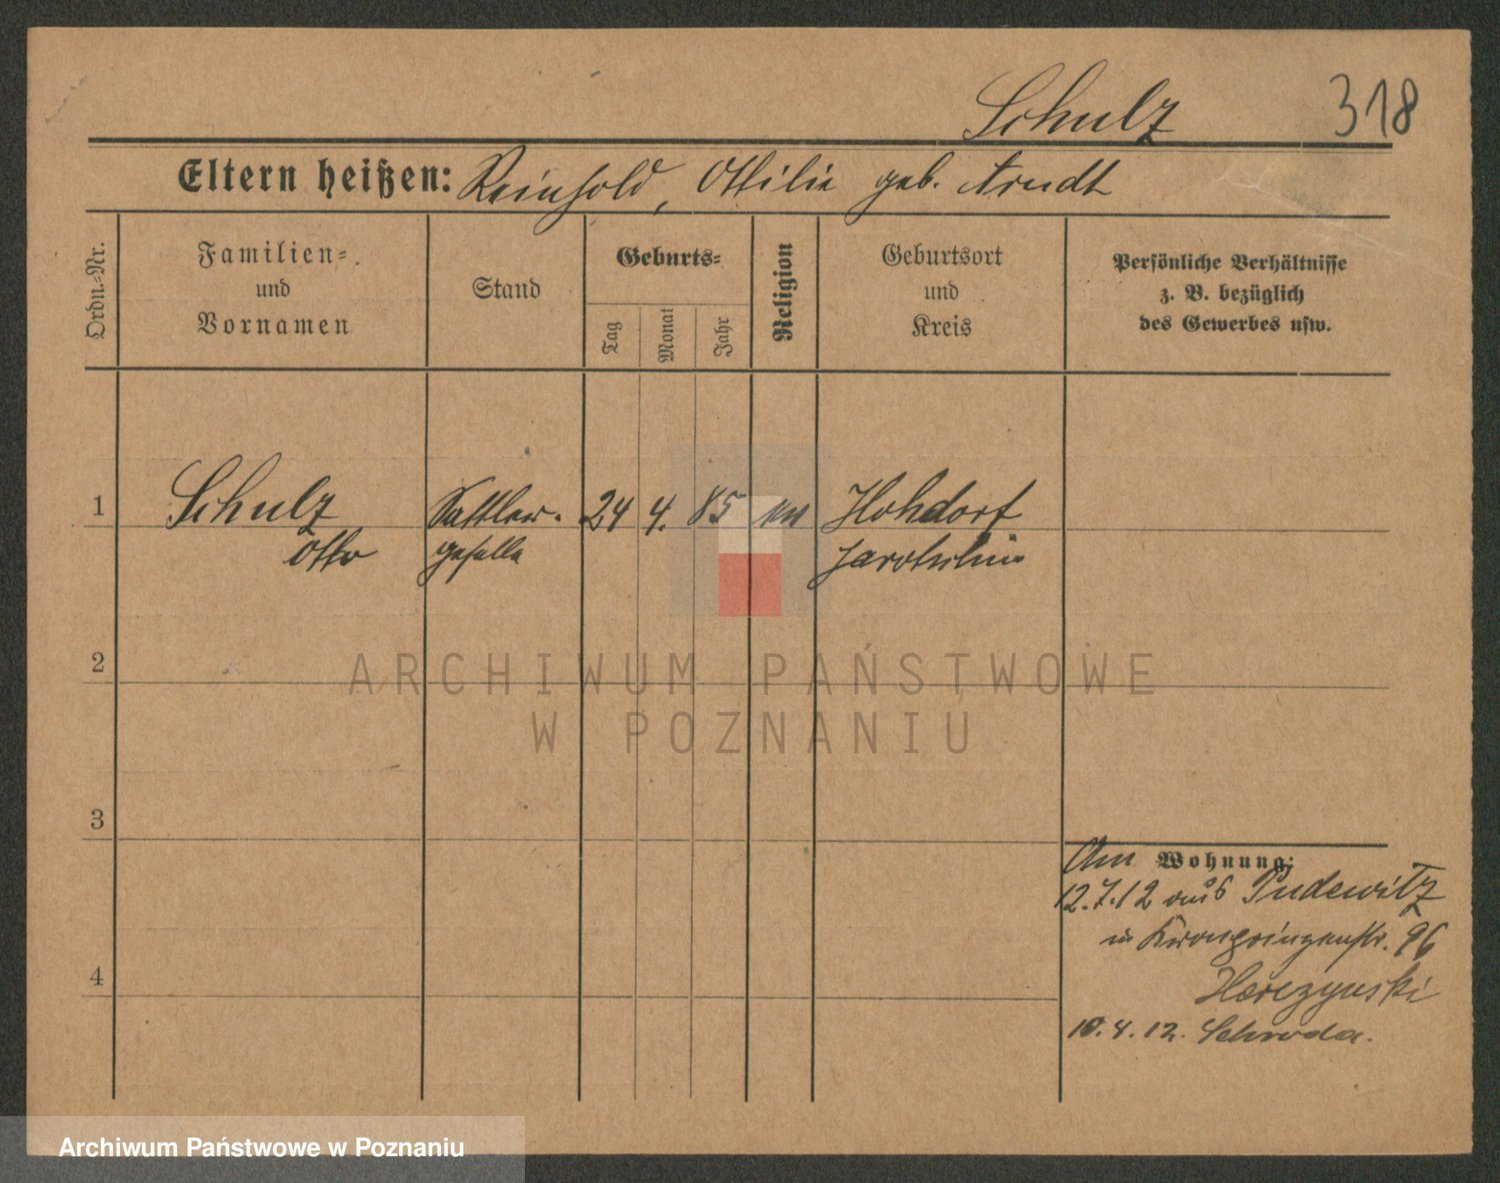 Schulz 318
Eltern heißen: Reinhold, Ottilie geb. Arndt
Ordn.-Nr.
Familien-
und
Vornamen
Stand
Geburts-
Tag
Monat
Jahr
Religion
Geburtsort
und
Kreis
Persönliche Verhältnisse
z. B. bezüglich
des Gewerbes usw.
1 Schulz Sattler- 24 4. 85 Hohdorf
Otto geselle Jarotschin
ARCHIWUM PAŃSTWOWE
W POZNANIU
2
3
4
Am Wohnung:
12.7.12 aus Pudewitz
in Kronprinzenstr. 96
10.8.12. Schroda.
Archiwum Państwowe w Poznaniu